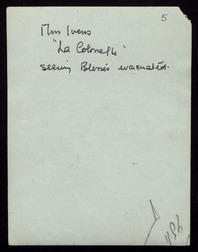 5
Mrs Ivens
"La Colonelle"
seeing Blessés evacuated.